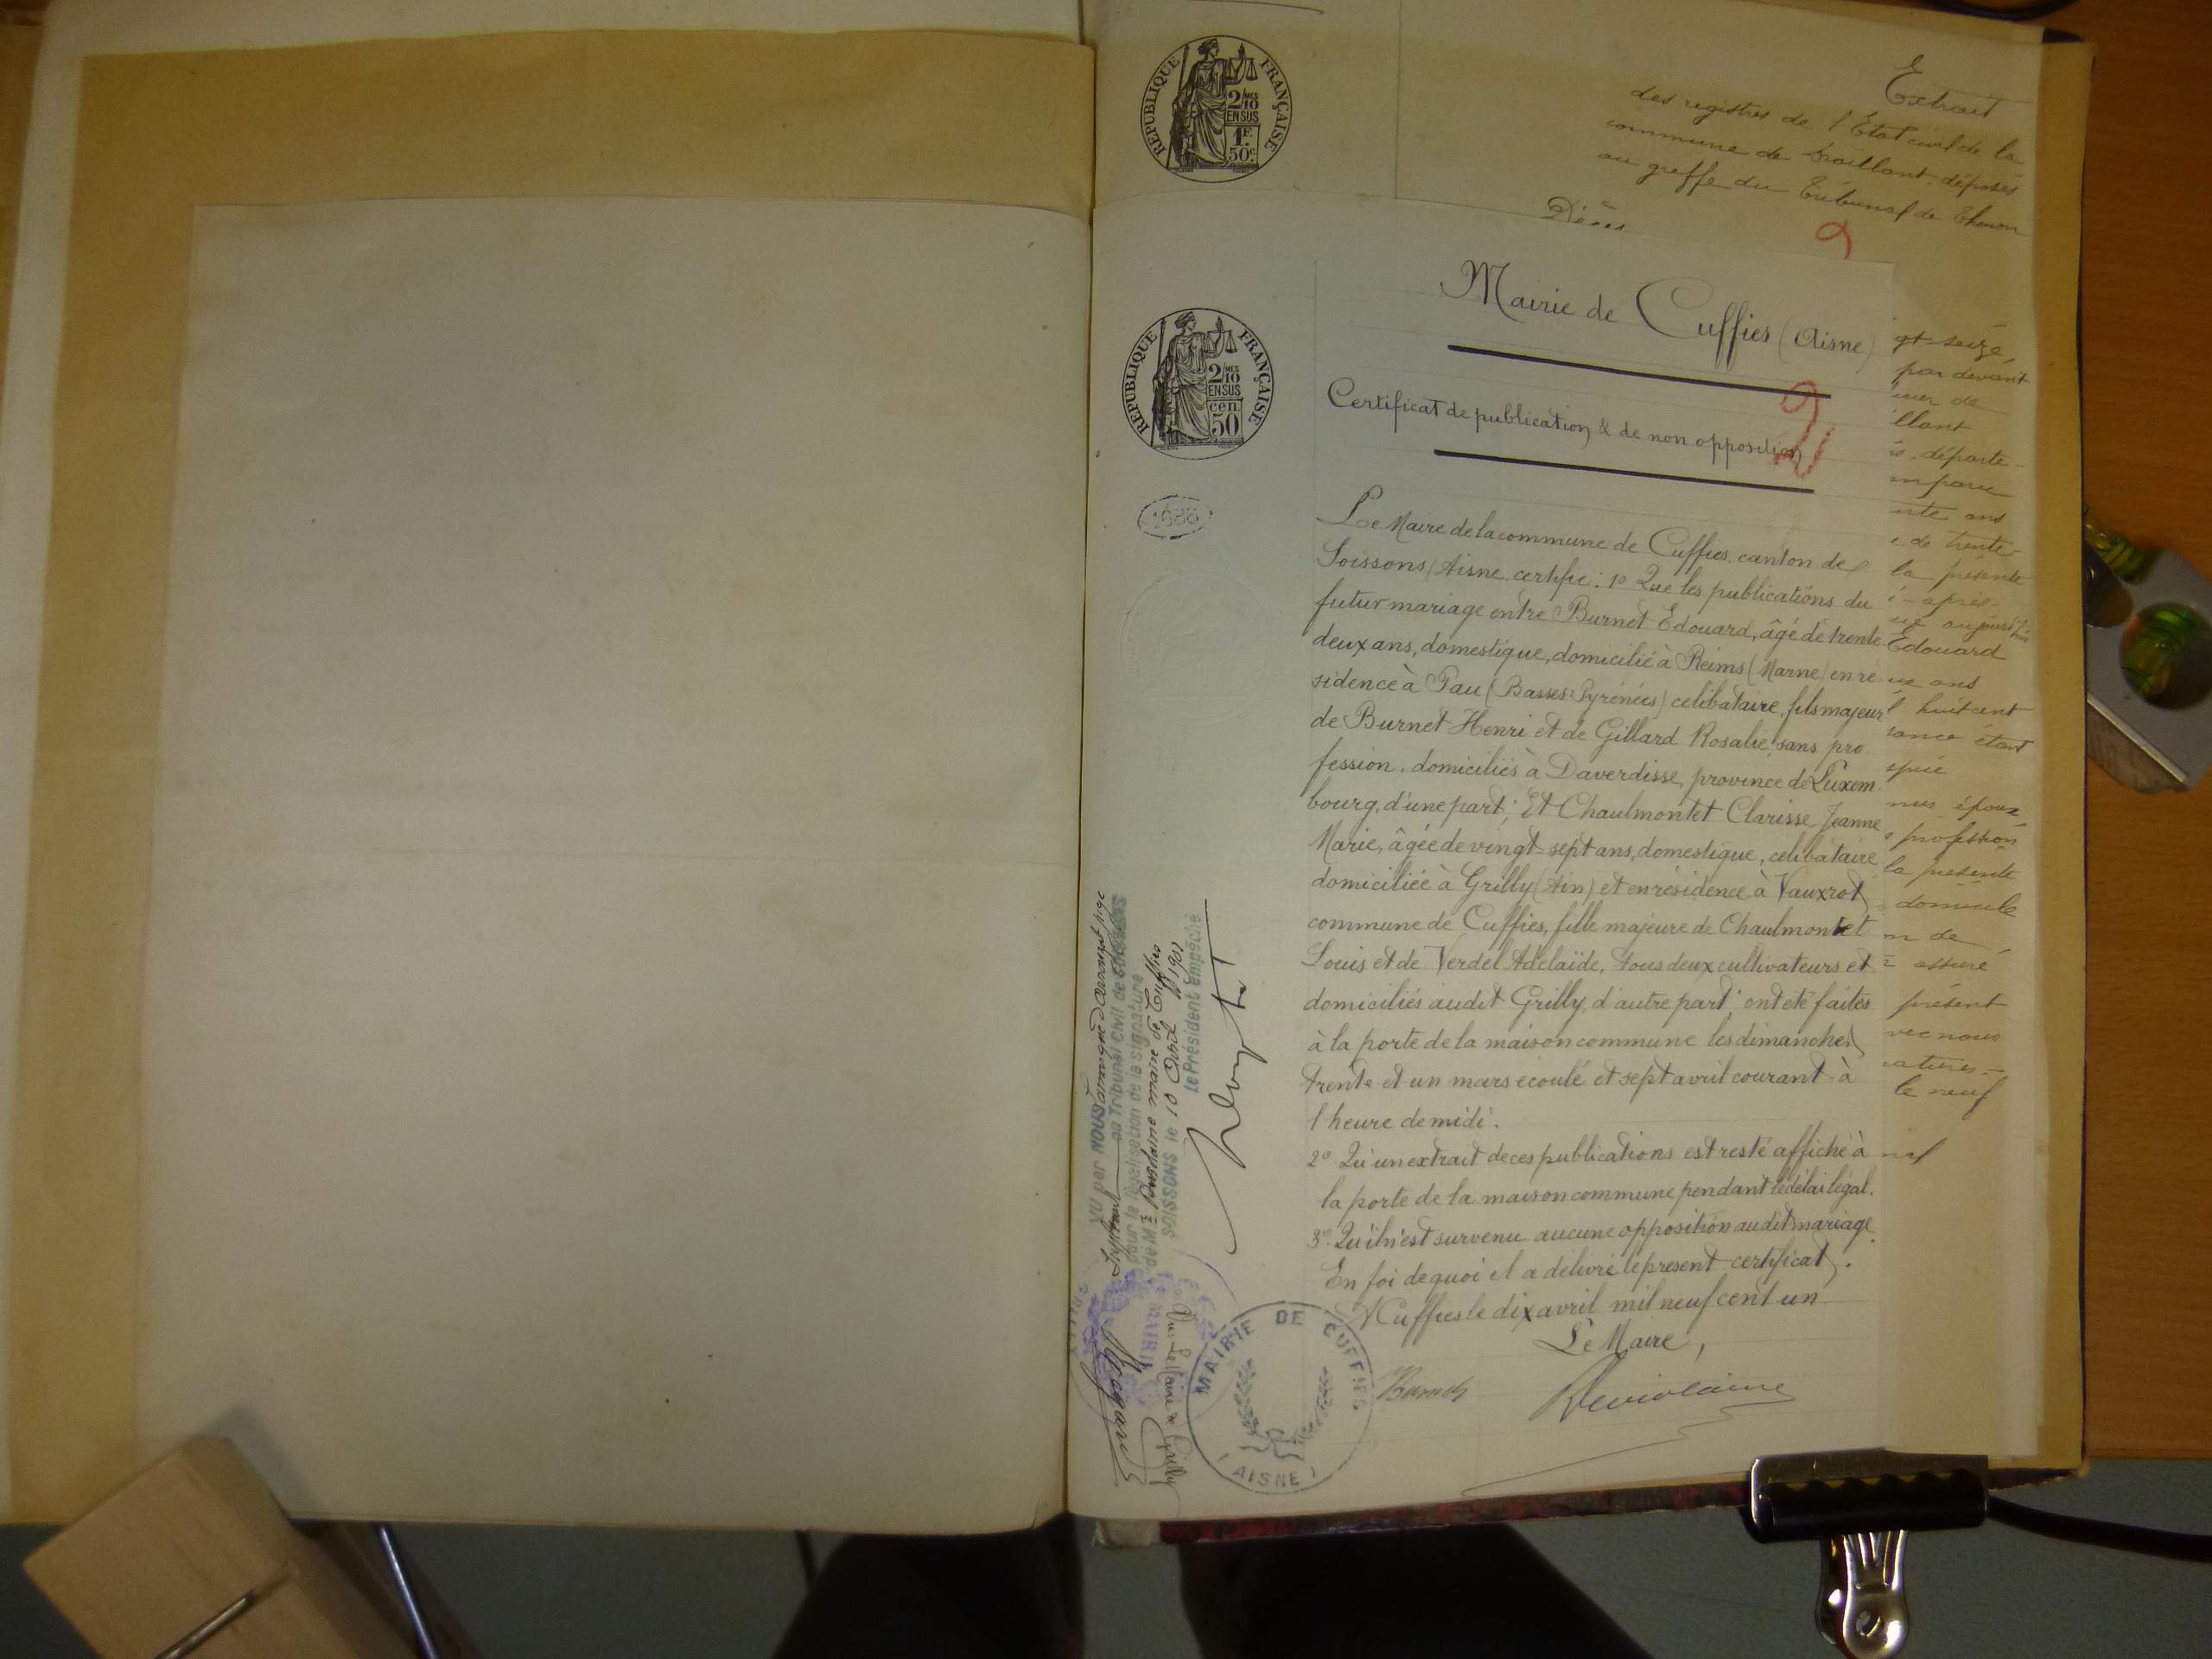 RÉPUBLIQUE FRANÇAISE
2/10 MES
EN SUS
1F.
50c.
Extrait
des registres de l'Etat civil de la
commune de Draillant déposés
au greffe du Tribunal de Thonon
Décès
9
RÉPUBLIQUE FRANÇAISE
2/10 MES
EN SUS
cen.
50
1688
Mairie de Cuffies (Aisne)
Certificat de publication & de non opposition
Le Maire de la commune de Cuffies, canton de
Soissons (Aisne, certifie : 1º Que les publications du
futur mariage entre Burnet Edouard, âgé de trente
deux ans, domestique, domicilié à Reims (Marne) en ré
sidence à Pau (Basses-Pyrénées) célibataire, fils majeur
de Burnet Henri et de Gillard Rosalie, sans pro
fession, domiciliés à Daverdisse, province de Luxem
bourg, d'une part; Et Chaulmontet Clarisse Jeanne
Marie, âgée de vingt-sept ans, domestique, célibataire
domiciliée à Grilly (Ain) et en résidence à Vauxrot
commune de Cuffies, fille majeure de Chaulmontet
Louis et de Verdel Adélaïde, tous deux cultivateurs et
domiciliés audit Grilly, d'autre part; ont été faites
à la porte de la maison commune les dimanches
trente et un mars écoulé et sept avril courant à
l'heure de midi.
2º Qu'un extrait de ces publications est resté affiché à
la porte de la maison commune pendant le délai légal.
3º Qu'il n'est survenu aucune opposition audit mariage.
En foi de quoi il a délivré le présent certificat.
A Cuffies le dix avril mil neuf cent un
Le Maire,
Deviolaine
MAIRIE DE CUFFIES
(AISNE)
gt-seize,
par devant
llant
départe-
ente ans
e de trente
la présente
i-après
ue aujourd'hui
Edouard
ux ans
l huit cent
sance étant
nus époux,
s profession
la présente
domicile
m de
assuré
présent
vec nous
atures.-
le neuf
VU par NOUS
au Tribunal Civil de SOISSONS
pour la légalisation de la signature
de Mr Deviolaine maire de Cuffies
SOISSONS le 10 Avril 1901
Le Président empêché
Vu: Le Maire de Grilly
MAIRIE